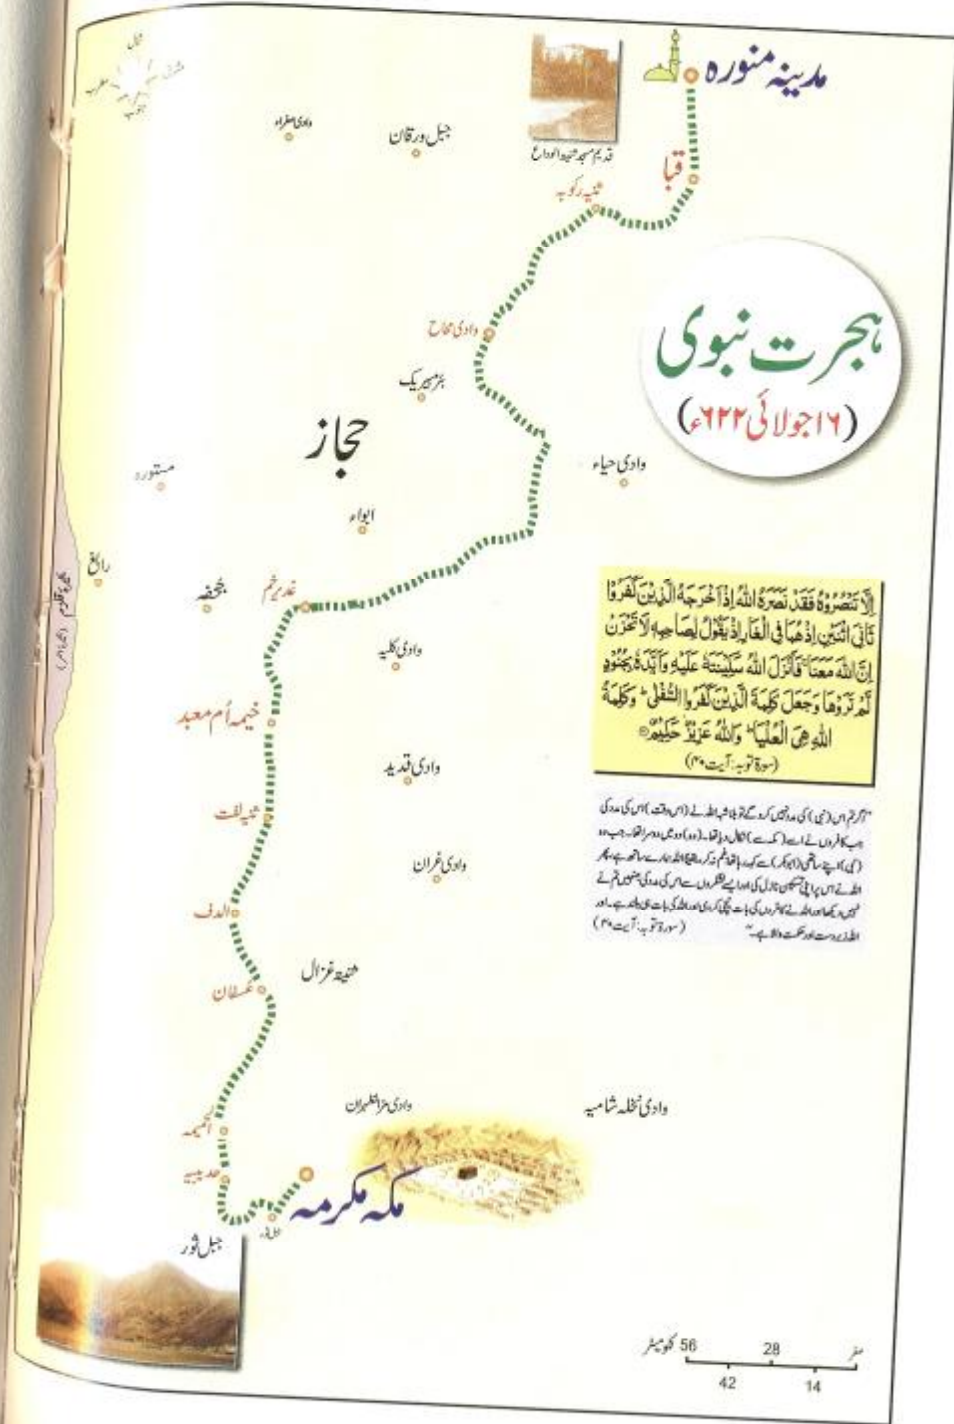 شمال
مشرق
مغرب
جنوب
مدینہ منورہ
قدیم مسجد ثنیۃ الوداع
وادی صفراء
جبل ورقان
قبا
ثنیہ رکوبہ
ہجرت نبوی
(۱۶ جولائی ۶۲۲ء)
بئر مبیریک
حجاز
وادی حیاء
مستورہ
ابواء
رابغ
جحفہ
غدیر خم
وادی کلیہ
خیمہ اُم معبد
وادی قدید
ثنیہ لفت
وادی غران
الدف
ثنیۃ غزال
عسفان
إِلَّا تَنْصُرُوهُ فَقَدْ نَصَرَهُ اللَّهُ إِذْ أَخْرَجَهُ الَّذِينَ كَفَرُوا
ثَانِيَ اثْنَيْنِ إِذْ هُمَا فِي الْغَارِ إِذْ يَقُولُ لِصَاحِبِهِ لَا تَحْزَنْ
إِنَّ اللَّهَ مَعَنَا ۖ فَأَنْزَلَ اللَّهُ سَكِينَتَهُ عَلَيْهِ وَأَيَّدَهُ بِجُنُودٍ
لَمْ تَرَوْهَا وَجَعَلَ كَلِمَةَ الَّذِينَ كَفَرُوا السُّفْلَىٰ ۗ وَكَلِمَةُ
اللَّهِ هِيَ الْعُلْيَا ۗ وَاللَّهُ عَزِيزٌ حَكِيمٌ
(سورۃ توبہ: آیت ۴۰)
"اگر تم اس (نبی) کی مدد نہیں کرو گے تو بلاشبہ اللہ نے (اس وقت) اس کی مدد کی
جب کافروں نے اسے (مکہ سے) نکال دیا تھا۔ (وہ) دو میں دوسرا تھا۔ جب وہ
(نبی) اپنے ساتھی (ابوبکر) سے کہہ رہا تھا غم نہ کر یقیناً اللہ ہمارے ساتھ ہے، پھر
اللہ نے اس پر اپنی تسکین نازل کی اور ایسے لشکروں سے اس کی مدد کی جنہیں تم نے
نہیں دیکھا اور اللہ نے کافروں کی بات نیچی کر دی اور اللہ کی بات ہی بلند ہے۔ اور
اللہ زبردست اور حکمت والا ہے۔" (سورۃ توبہ: آیت ۴۰)
وادی مرالظہران
وادی نخلہ شامیہ
حدیبیہ
مکہ مکرمہ
جبل ثور
کلومیٹر 56 28 صفر
42 14